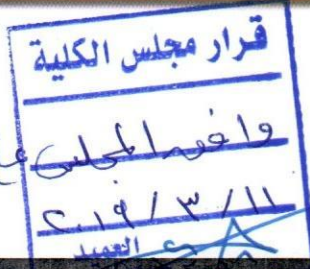 قرار مجلس الكلية
وافق المجلس
٢٠١٩/٣/١١
العميد